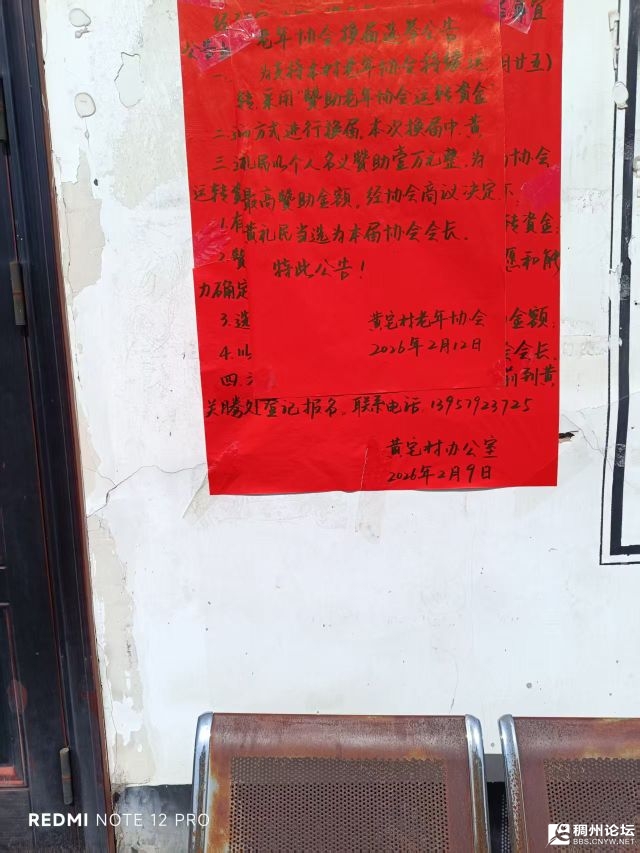 老年协会换届选举公告
为支持本村老年协会持续运
转,采用“赞助老年协会运转資金”
的方式进行换届,本次换届中,黄
礼民以个人名义赞助壹万元整,为
最高赞助金额,经协会商议决定,
黄礼民当选为本届协会会长。
特此公告!
黄宅村老年协会
2026年2月12日
公告
一、
月廿五)
二、
三、
协会
运转
1.有
转資金
2.赞
愿和能
力确定
3.选
金额
4.以
会长。
四.
前到黄
关腾处登记报名。联系电话 13957923725
黄宅村办公室
2026年2月9日
REDMI NOTE 12 PRO
稠州论坛
BBS.CNYW.NET